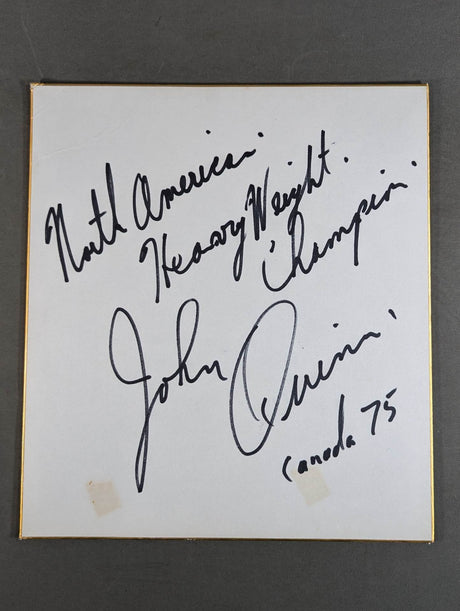 North American
Heavy Weight
Champion
John Quinn
Canada 75